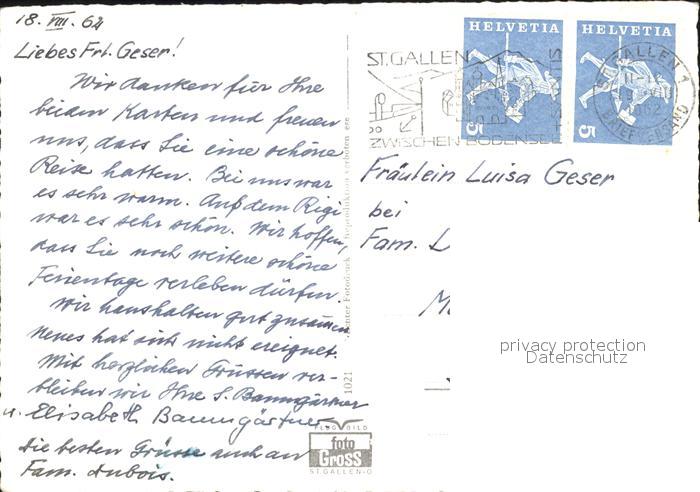 18. VIII. 62
Liebes Frl. Geser!
Wir danken für Ihre
beiden Karten und freuen
uns, dass Sie eine schöne
Reise hatten. Bei uns war
es sehr warm. Auf dem Rigi
war es sehr schön. Wir hoffen,
dass Sie noch weitere schöne
Ferientage verleben dürfen.
Wir haushalten gut zusammen
Neues hat sich nicht ereignet.
Mit herzlichen Grüssen ver-
bleiben wir Ihre S. Baumgärtner
u. Elisabeth Baumgärtner
Die besten Grüsse auch an
Fam. Dubois.
HELVETIA
5
HELVETIA
5
ST. GALLEN
ZWISCHEN BODENSEE
ST. GALLEN 1
BRIEFVERSAND
Fräulein Luisa Geser
bei
Fam. L
M
privacy protection
Datenschutz
Reproduktion verboten
1021
FLUGBILD
foto
GROSS
ST. GALLEN-O